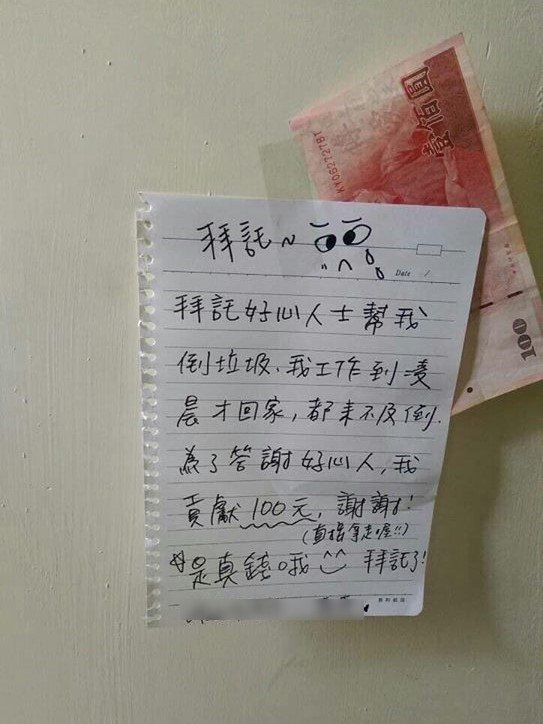 壹佰圓
KY062727BT
100
拜託~
Date /
拜託好心人士幫我
倒垃圾、我工作到凌
晨才回家，都來不及倒.
為了答謝好心人，我
貢獻100元，謝謝!
(直接拿走喔!!)
☆是真錢哦 拜託了!